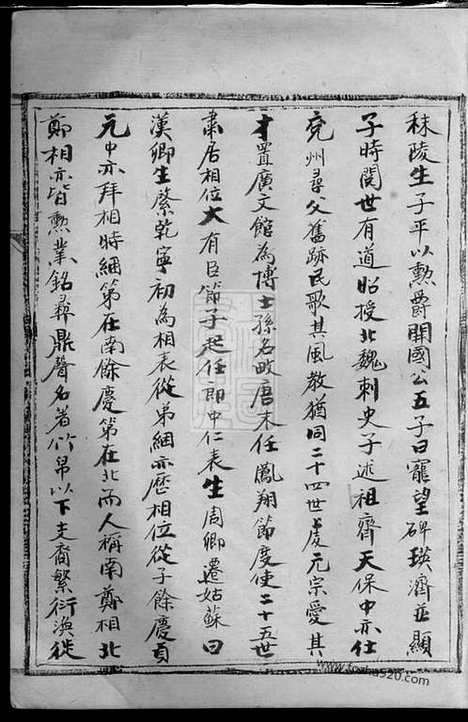 秣陵生子平以勲爵開國公五子曰寵望碑瑛濟並顯
子時閱世有道昭授北魏刺史子述祖齊天保中亦仕
兖州尋父舊跡民歌其風教猶同二十四世虔元宗愛其
才置廣文館為博士孫名畋唐末任鳳翔節度使二十五世
肅居相位大有臣節子起任郎中仁表生周卿遷姑蘇曰
漢卿生綮乾寧初為相表從弟絪亦歷相位從子餘慶貞
元中亦拜相時絪第在南餘慶第在北而人稱南鄭相北
鄭相亦皆勲業銘彝鼎聲名著竹帛以下支裔繁衍渙從